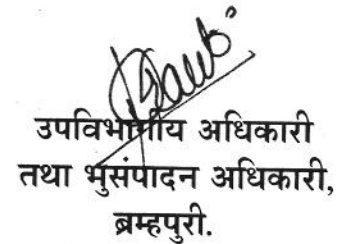 उपविभागीय अधिकारी
तथा भुसंपादन अधिकारी,
ब्रम्हपुरी.